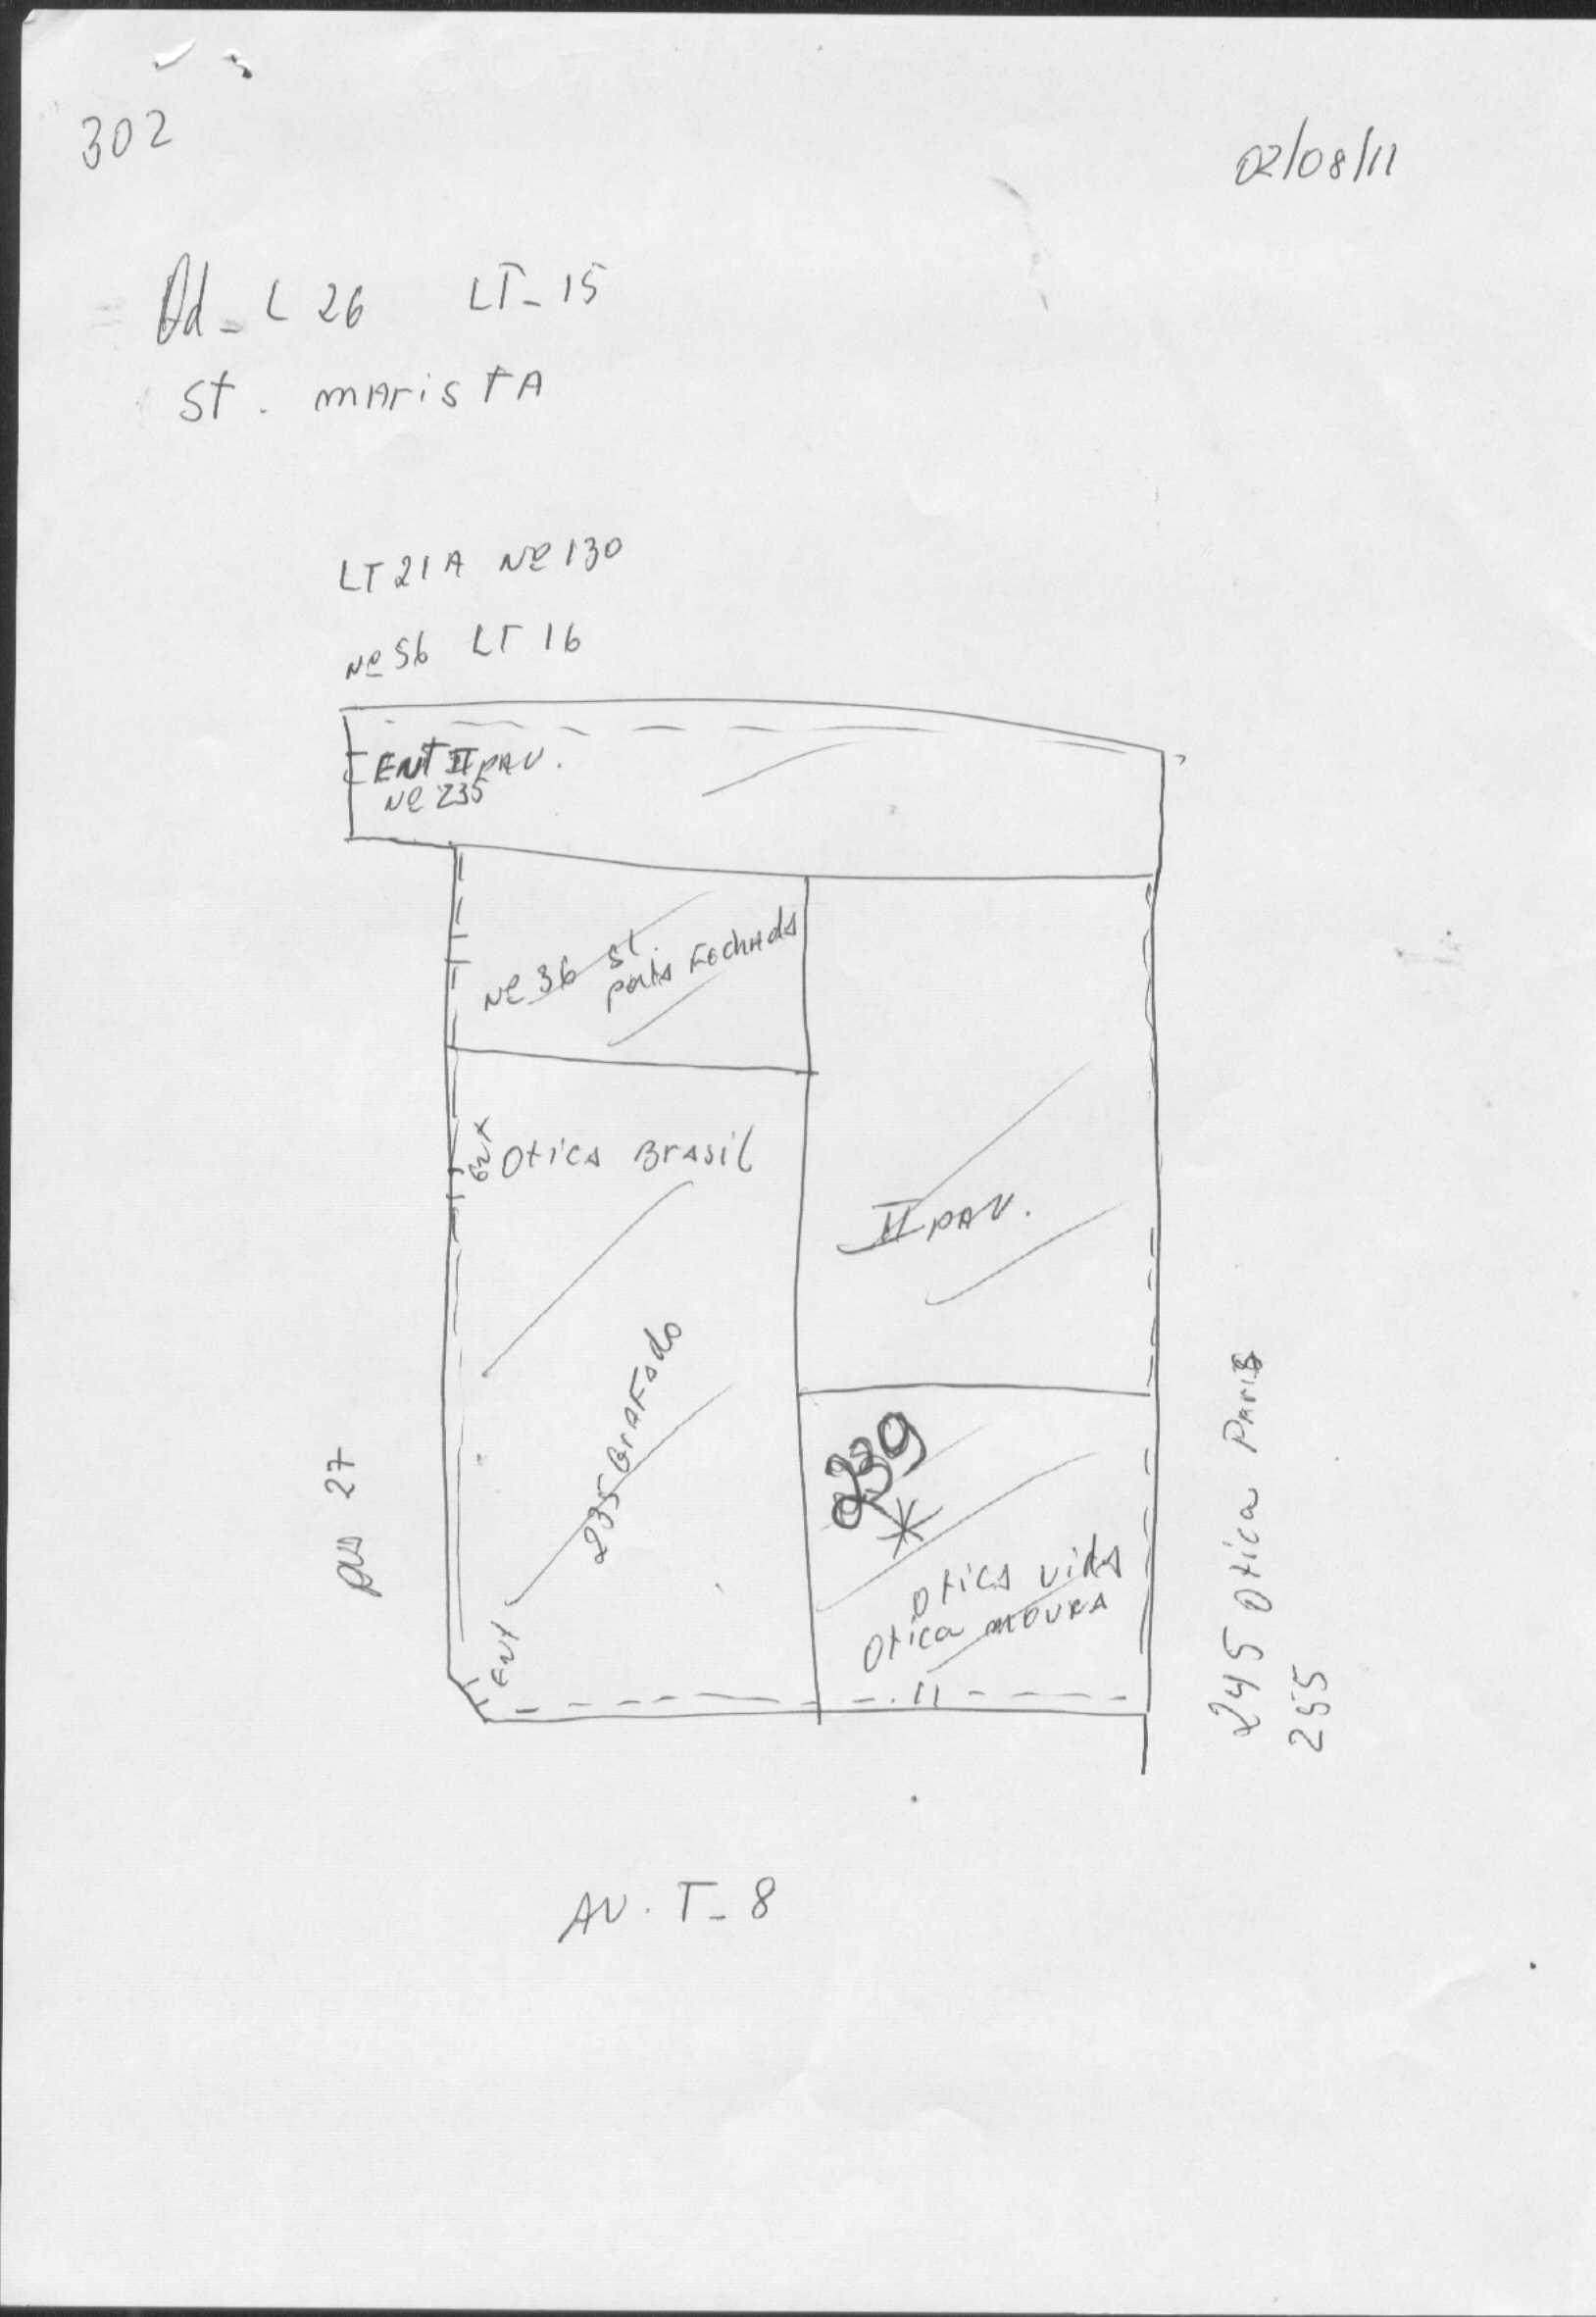 302
02/08/11
Qd - L 26 LT - 15
St. mArisTA
LT 21 A Nº 130
Nº 56 LT 16
ENT II PAV.
Nº 235
Nº 36 St.
porta Fechada
ENT
Otica Brasil
II PAV.
235 GrAFado
239
*
Otica vida
Otica MOURA
ENT
Rua 27
245 Otica PAris
255
AV. T - 8